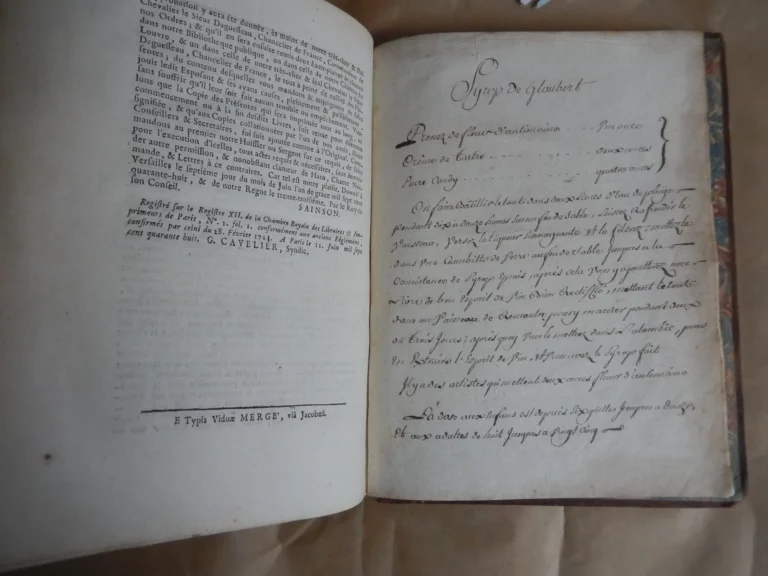 probation y aura été donnée, ès mains de notre très-cher & féal
Chevalier le Sieur Daguesseau, Chancelier de France, Commandeur de
nos Ordres; & qu'il en sera ensuite remis deux Exemplaires
dans notre Bibliotheque publique, un dans celle de notre Château du
Louvre, & un dans celle de notre très-cher & féal Chevalier le Sieur
Daguesseau, Chancelier de France; le tout à peine de nullité des Pré-
sentes; du contenu desquelles vous mandons & enjoignons de faire
jouir ledit Exposant & ses ayans causes, pleinement & paisiblement,
sans souffrir qu'il leur soit fait aucun trouble ou empêchement. Vou-
lons que la Copie des Présentes qui sera imprimée tout au long, au
commencement ou à la fin dudit Livre, soit tenue pour duement
signifiée, & qu'aux Copies collationnées par l'un de nos amés, féaux
Conseillers & Secretaires, foi soit ajoutée comme à l'Original. Com-
mandons au premier notre Huissier ou Sergent sur ce requis, de faire
pour l'execution d'icelles, tous actes requis & nécessaires, sans deman-
der autre permission, & nonobstant clameur de Haro, Charte Nor-
mande, & Lettres à ce contraires. Car tel est notre plaisir. Donné à
Versailles le septiéme jour du mois de Juin l'an de grace mil sept cent
quarante-huit, & de notre Regne le trente-troisiéme. Par le Roy en
son Conseil. SAINSON.
Registré sur le Registre XII. de la Chambre Royale des Libraires & Im-
primeurs de Paris, Nº. 1. fol. 1. conformément aux anciens Réglemens,
confirmés par celui du 28. Février 1723. A Paris le 11. Juin mil sept
cent quarante huit. G. CAVELIER, Syndic.
E Typis Viduæ MERGE', viâ Jacobæâ.
Syrop de Glaubert
Prenez de fleurs d'antimoine . . . . . Une once
Crême de Tartre . . . . . deux onces
Sucre Candy . . . . . quatre onces
On fait le tout dans deux livres d'eau de pluye
pendant dix à douze heures sur un feu de Sable, Laissez Refroidir le
Vaisseau, Versez la liqueur Surnageante et la filtrez, mettez la
dans Une Cucurbitte de Verre au feu de Sable, Jusques a la
Consistance de Syrop Epais, après cela Vous y ajoutterez une
Livre de bon Esprit de Vin bien Rectiffié, mettant le tout
dans un Vaisseau de Rencontre pour y macerer pendant deux
ou trois Jours; après quoy Vous le mettrez dans L'alambic, pour
En Retirer l'Esprit de Vin, et Vous avez le Syrop fait
Il y a des artistes qui mettent deux onces fleurs d'antimoine
La dose aux Enfans est depuis Six gouttes Jusques a douze,
Et aux adultes de huit Jusques a Vingt Cinq